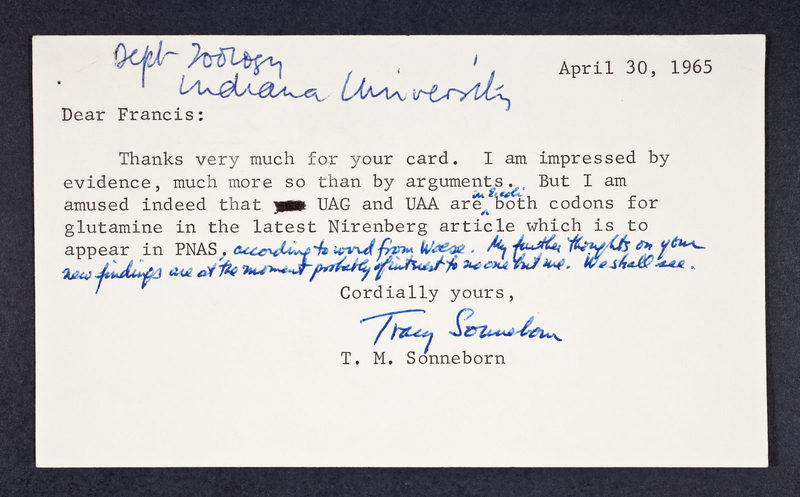 Dept Zoology
Indiana University
April 30, 1965
Dear Francis:
Thanks very much for your card. I am impressed by
evidence, much more so than by arguments. But I am
amused indeed that UAG and UAA are in E coli both codons for
glutamine in the latest Nirenberg article which is to
appear in PNAS, according to word from Woese. My further thoughts on your
new findings are at the moment probably of interest to no one but me. We shall see.
Cordially yours,
Tracy Sonneborn
T. M. Sonneborn